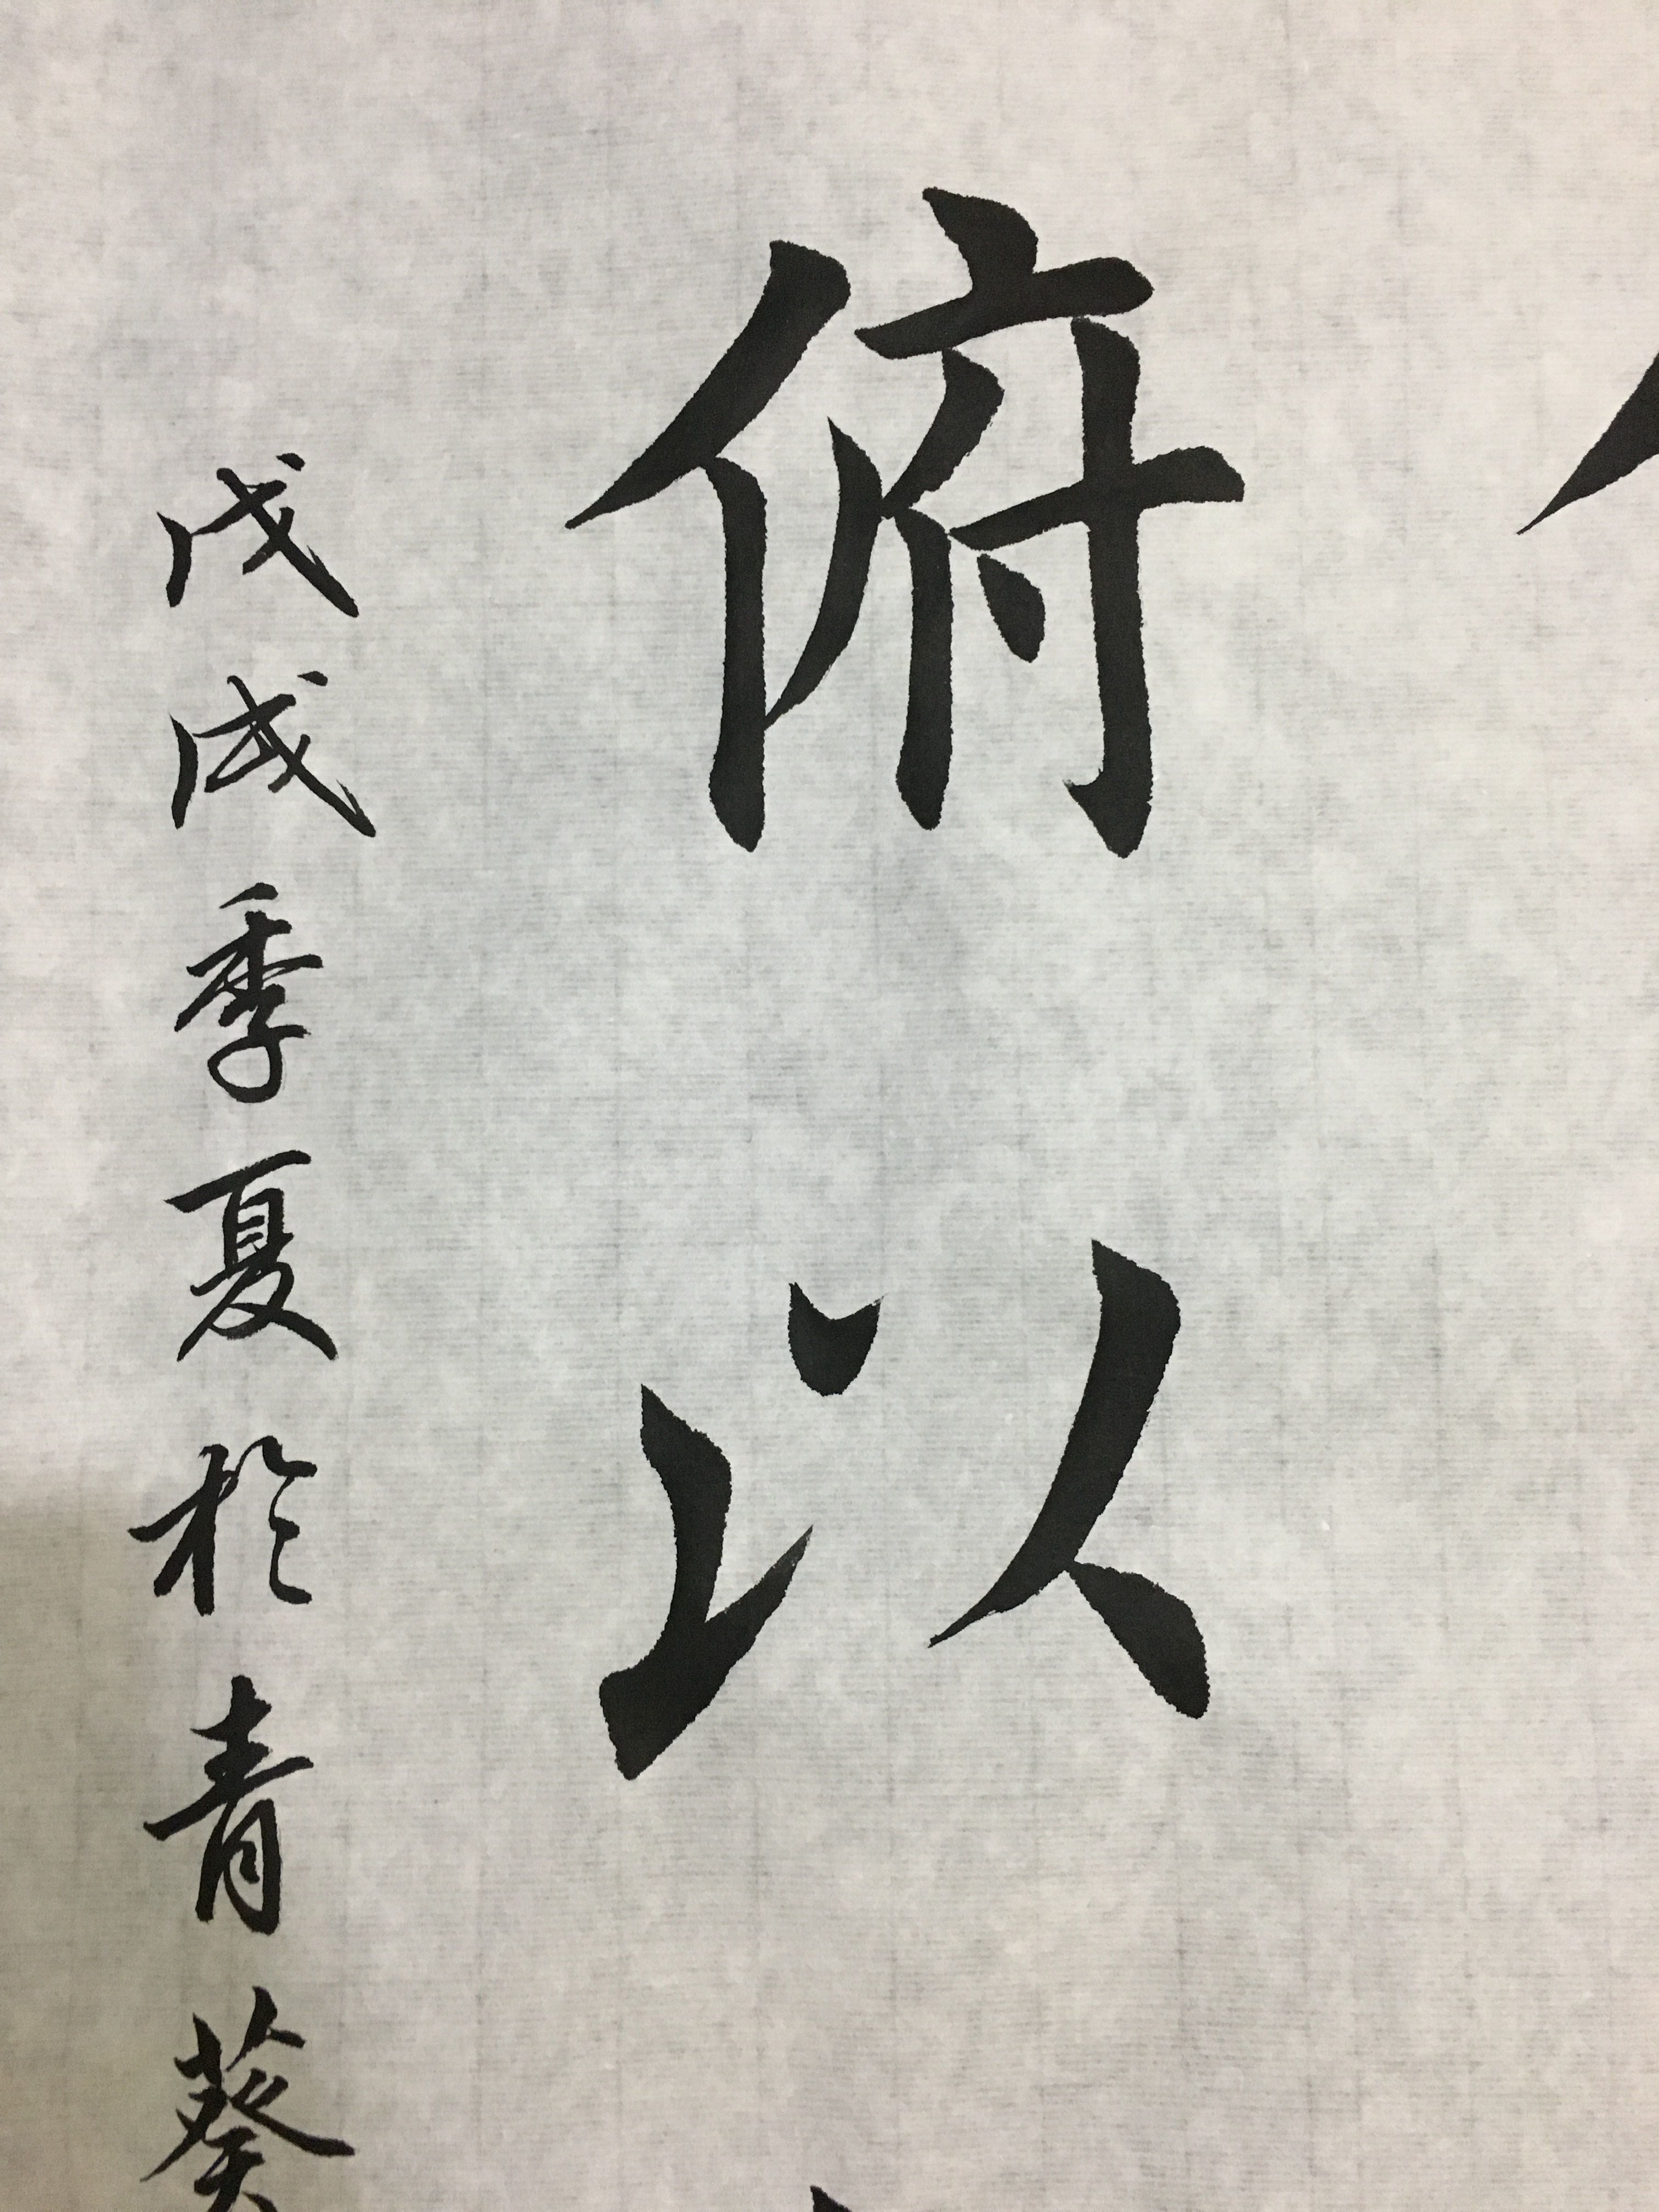 俯以
戊戌季夏於青葵